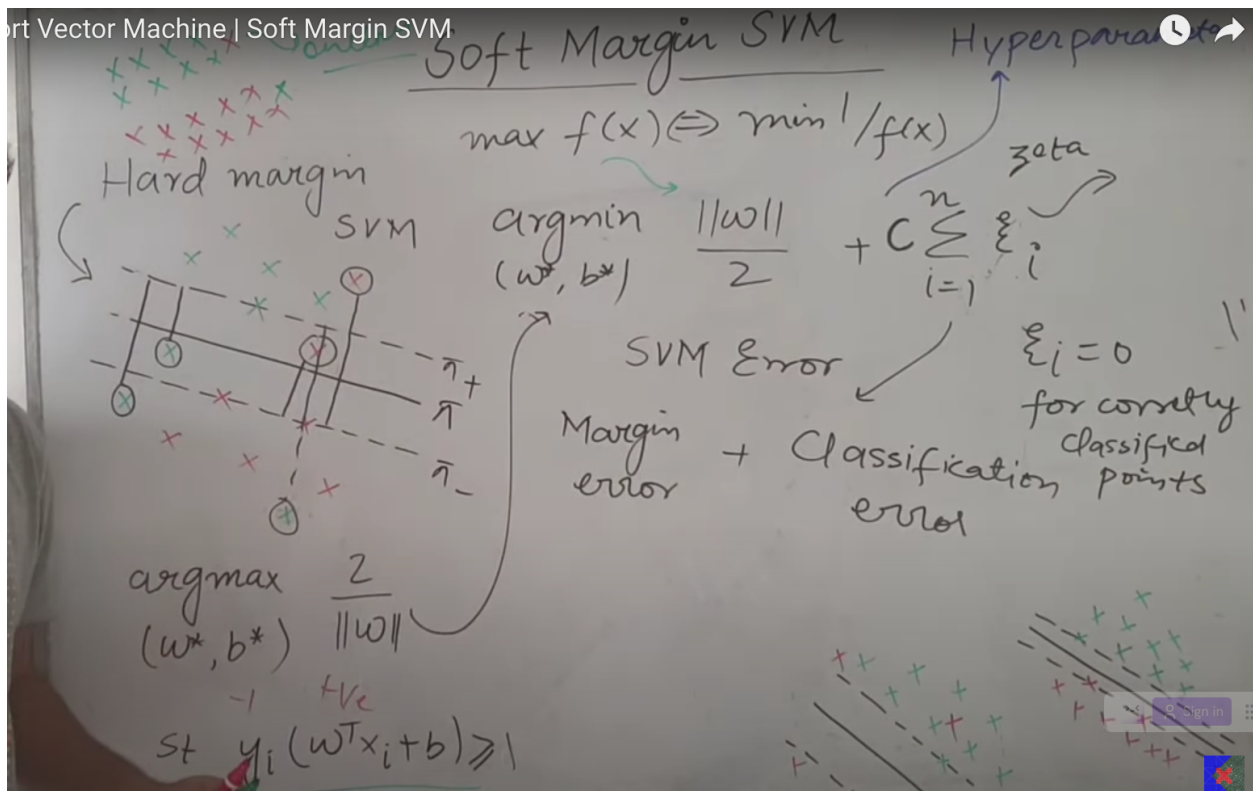 ort Vector Machine | Soft Margin SVM
Soft Margin SVM
max f(x) ⇔ min 1/f(x)
Hyperparamete
zeta
Hard margin
SVM
argmin ||w||/2 + C Σ ξi
(w*, b*)
n
i=1
SVM Error
ξi = 0
for corretly
classified
points
Margin
error
+ Classification
error
π+
π
π-
argmax 2/||w||
(w*, b*)
-1 +ve
st yi (wTxi+b) ⩾ 1
Sign in